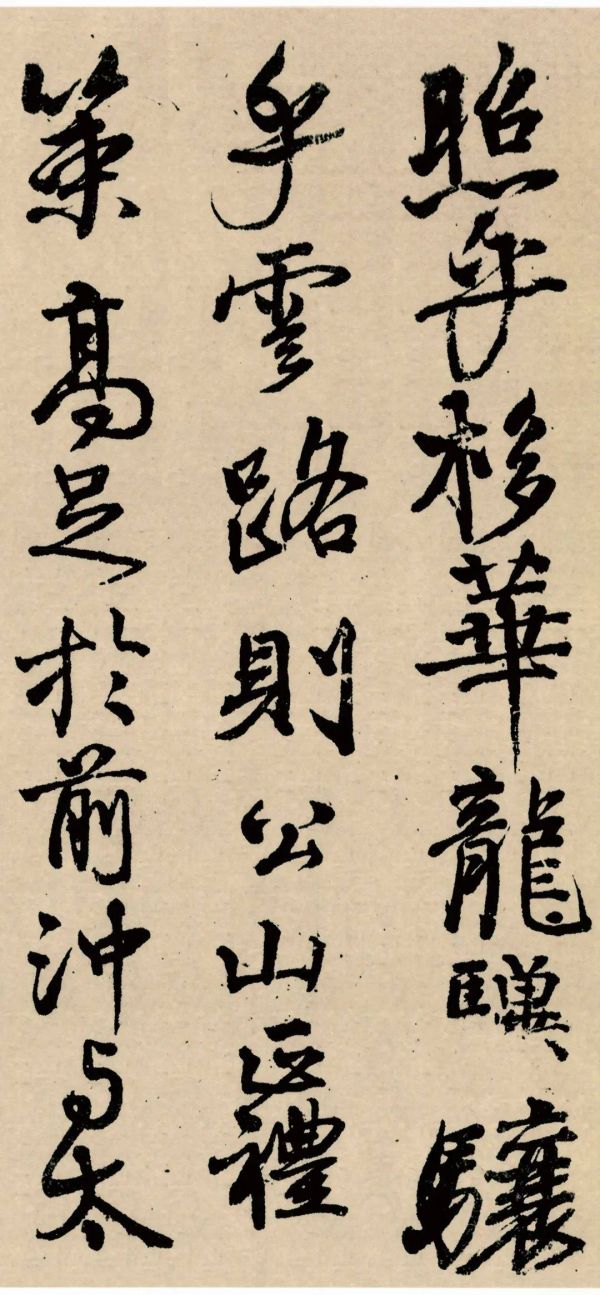 照乎栘華龍驤
乎雲路則公山正禮
策高足於前沖与太